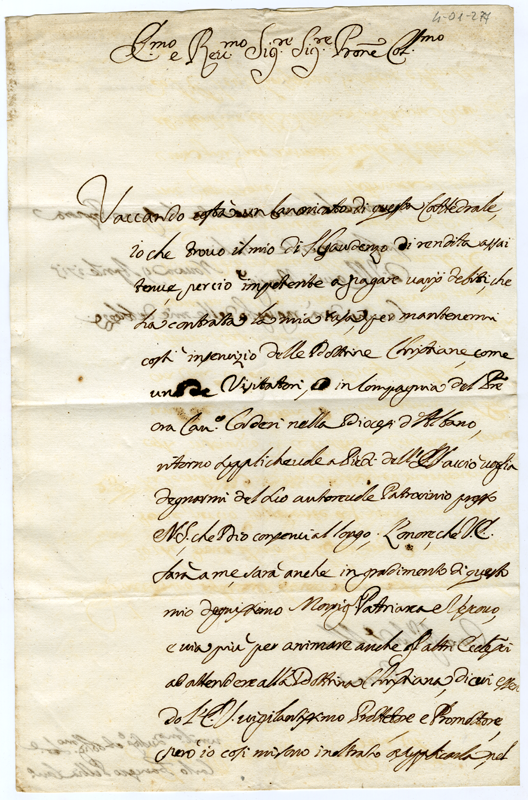 4-01-277
E.mo e Rev.mo Sig.re Sig.re Prone Col.mo
Vaccando costà un Canonicato di questa Cattedrale,
io che trovo il mio di S. Gaudenzo di rendita assai
tenue, perciò impotente a pagare varij debiti, che
ha contratta la mia casa per mantenermi
costì in servizio delle Dottrine Christiane, come
uno de Visitatori, in Compagnia del
ora Can.o Corderi nella Diocesi d'Albano,
ritorno supplichevole a Piedi dell'E.V. acciò voglia
degnarmi del suo autorevole Patrocinio presso
N.S. che Dio conservi al longo. L'onore, che V.E.
farà a me, sarà anche in gradimento di questo
mio degnissimo Monsig. Patriarca e Vescovo,
e via più per animare anche gl'altri
ad attendere alla Dottrina Christiana, di cui
do l'E.V. vigilantissimo Protettore e Promottore,
però io così mi sono inoltrato a supplicarla, nel